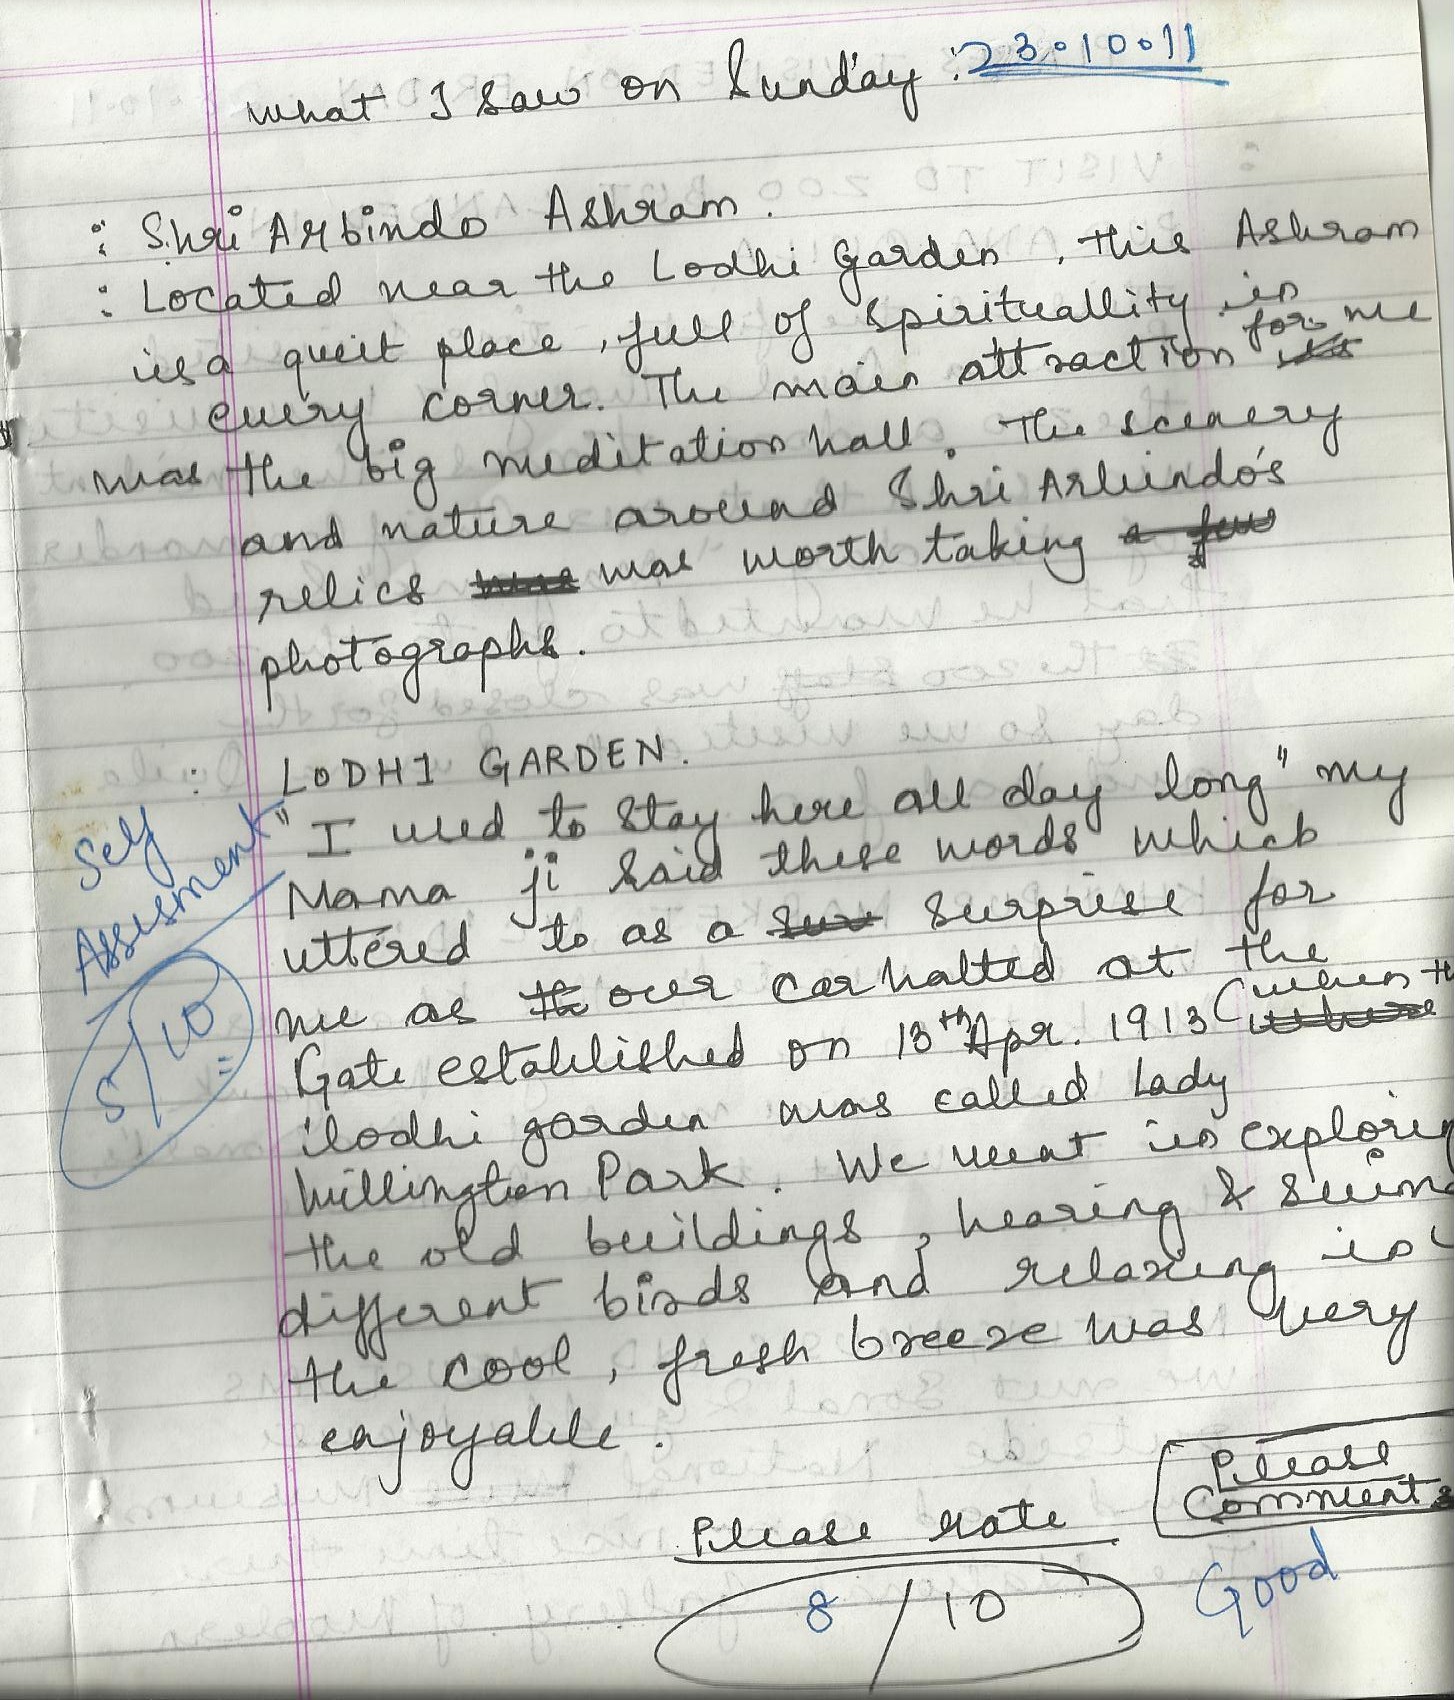 What I Saw on Sunday : 23.10.11
: Shri Arbindo Ashram.
: Located near the Lodhi Garden, this Ashram
is a queit place, full of spirituallity in
every corner. The main attraction for me
was the big meditation hall. The scenery
and nature around Shri Arbindo's
relics was worth taking a few
photographs.
: LODHI GARDEN.
"I used to stay here all day long" my
Mama ji said these words which
uttered to as a surprise for
me as our car halted at the
Gate established on 13th Apr. 1913 (when th
lodhi garden was called Lady
Willington Park. We went in explorin
the old buildings, hearing & seeing
different birds and relaxing in
the cool, fresh breeze was very
enjoyable.
Self
Assesment
5/10
Please rate
8/10
Please
Comments
Good